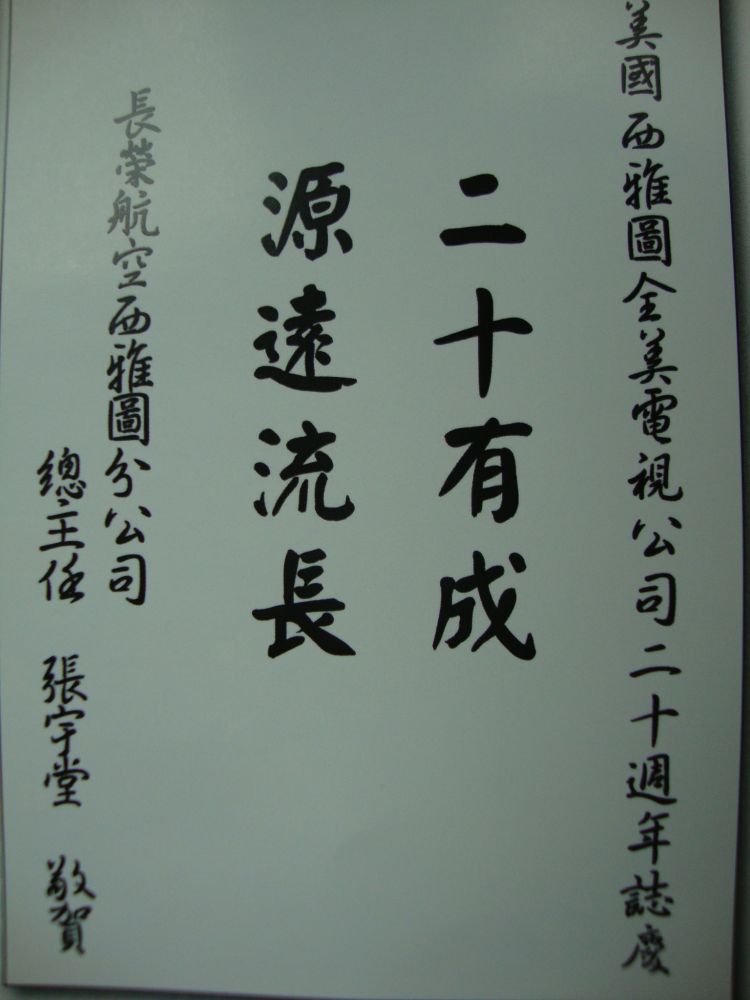 美國西雅圖全美電視公司二十週年誌慶
二十有成
源遠流長
長榮航空西雅圖分公司
總主任 張宇堂 敬賀